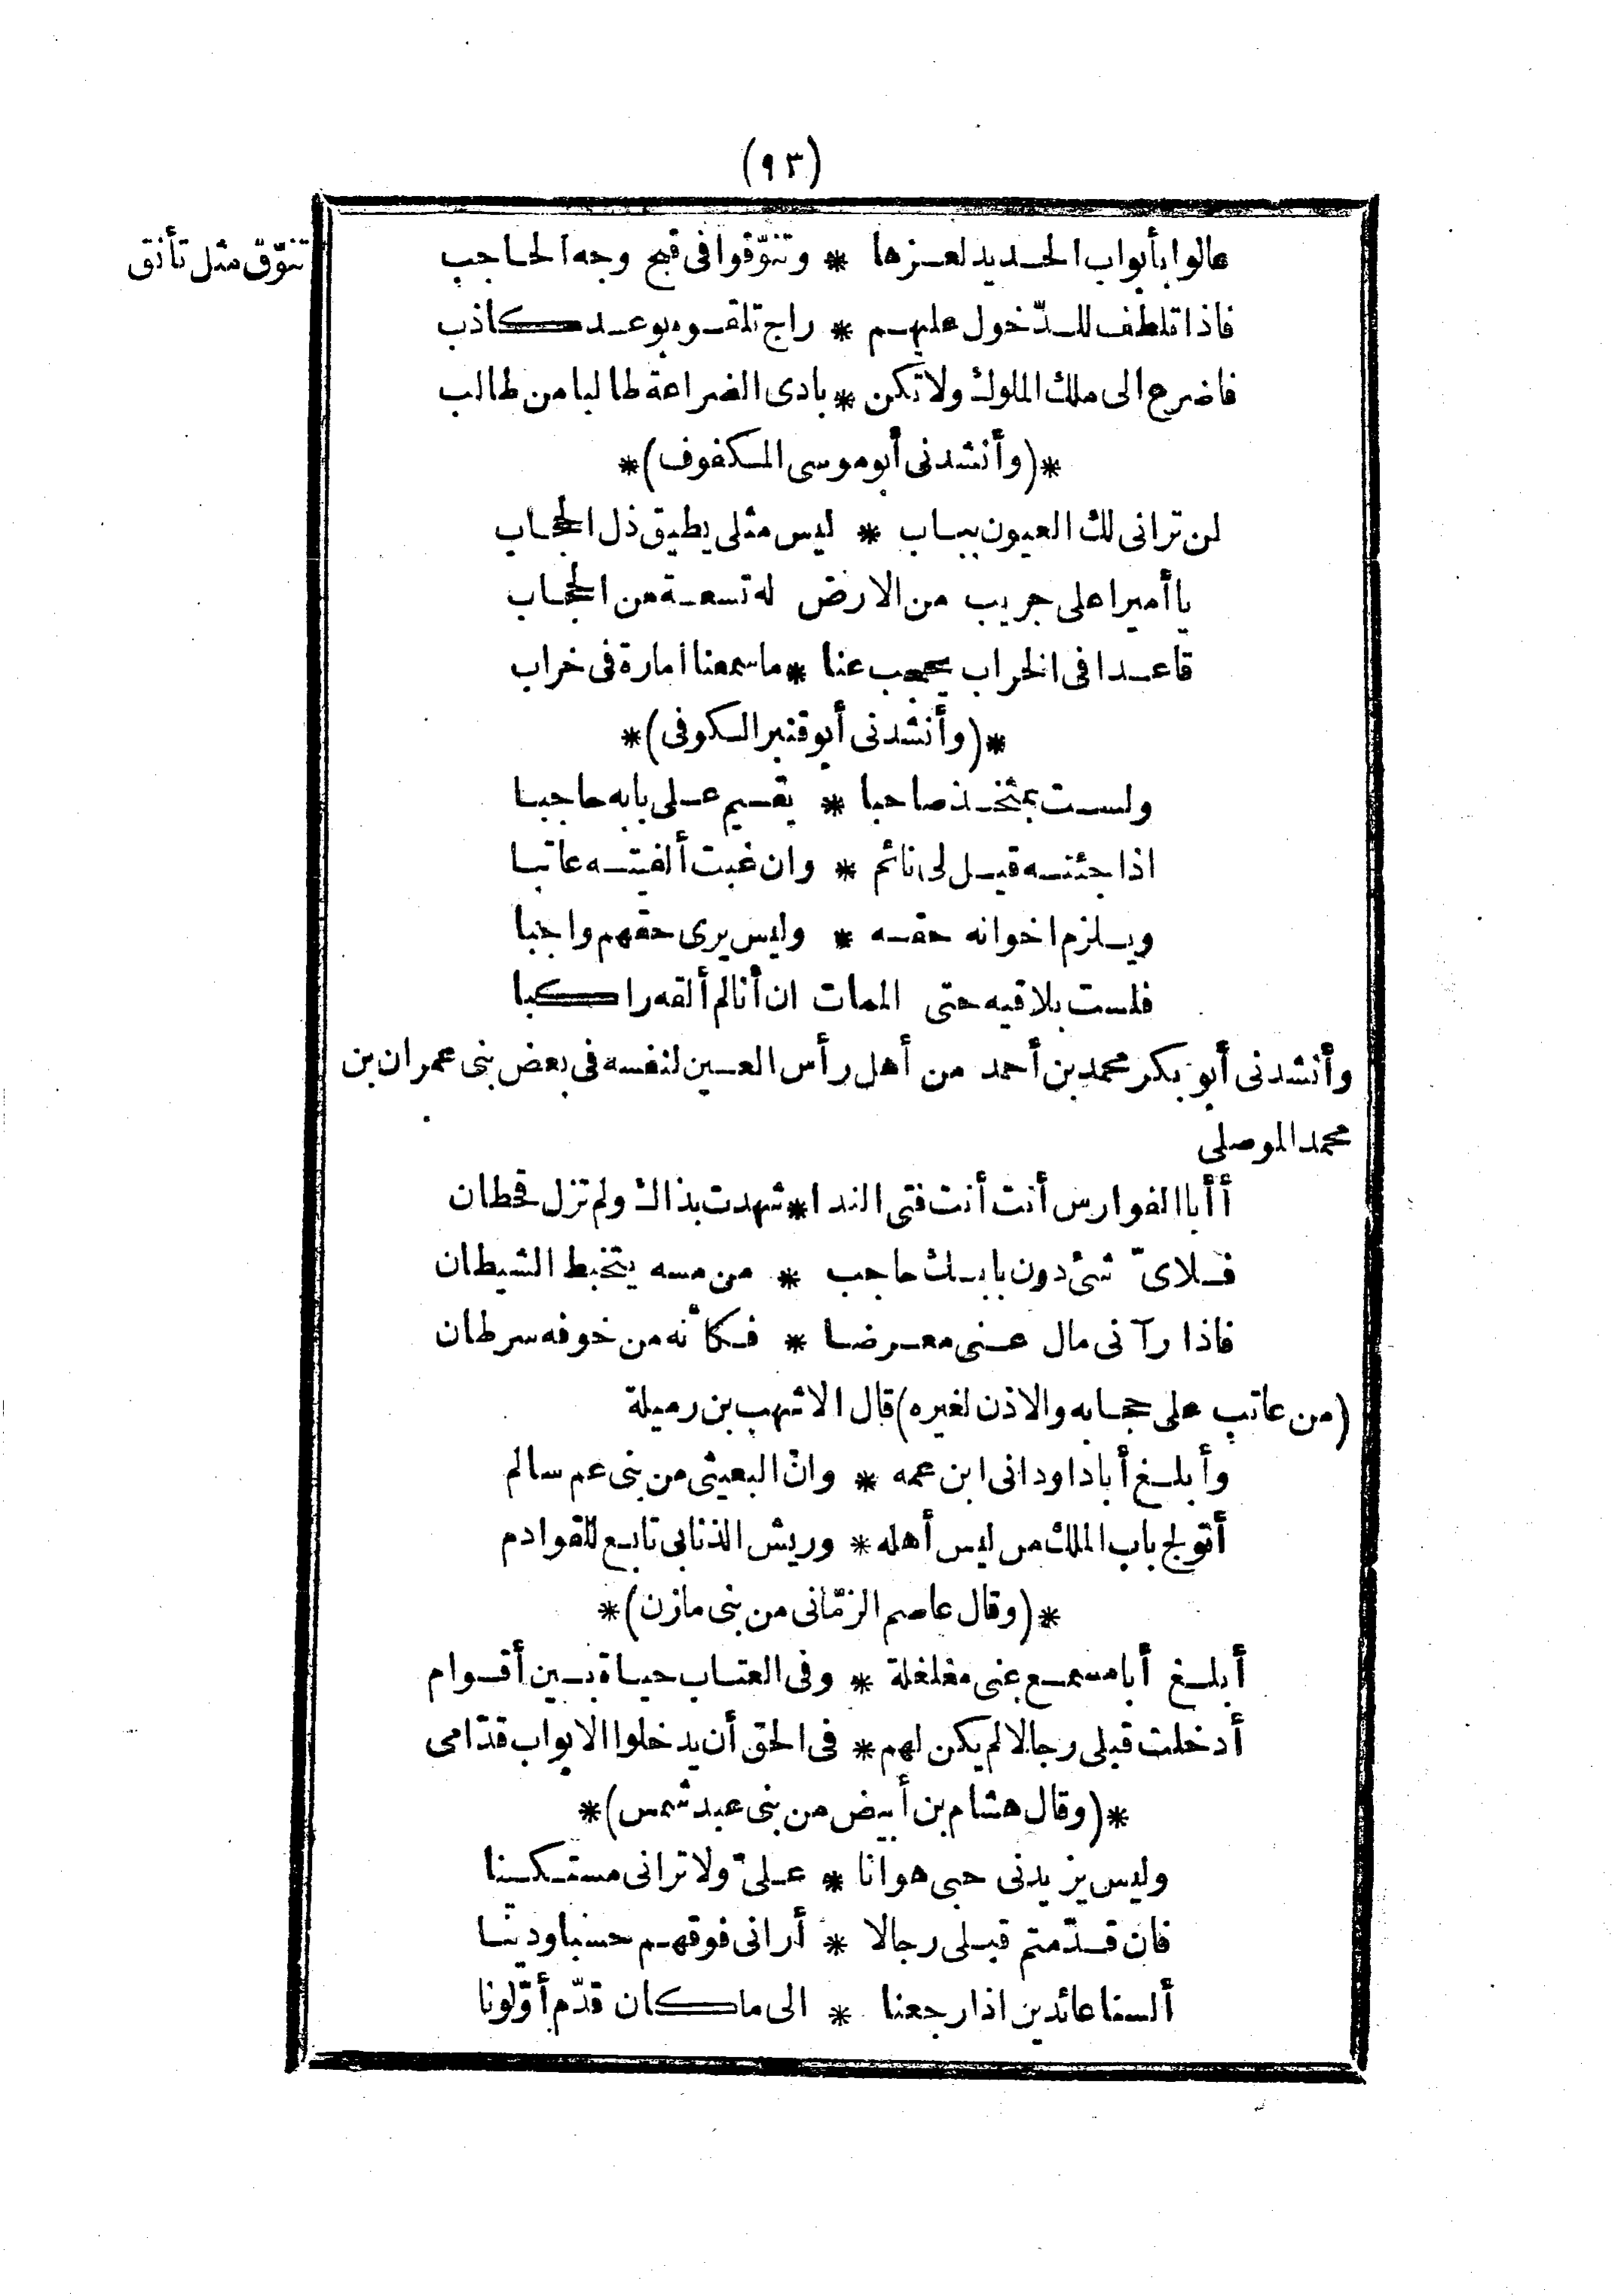 (٩٣)
عالوا بأبواب الحديد لعزها * وتنوّقوا فى قبح وجه الحاجب
تنوّق مثل تأنق
فاذا تلطف للدّخول عليهم * راج تلقوه بوعد كاذب
فاضرع الى ملك الملوك ولا تكن * بادى الضراعة طالبا من طالب
*(وأنشدنى أبو موسى المكفوف)*
لن ترانى لك العيون بباب * ليس مثلى يطيق ذل الحجاب
يا أميرا على جريب من الارض له تسعة من الحجاب
قاعدا فى الخراب يحجب عنا * ما سمعنا امارة فى خراب
*(وأنشدنى أبو قنبر الكوفى)*
ولست بمتخذ صاحبا * يقيم على بابه حاجبا
اذا جئته قيل لى نائم * وان غبت ألفيته عاتبا
ويلزم اخوانه حقه * وليس يرى حقهم واجبا
فلست بلاقيه حتى الممات ان أنا لم ألقه راكبا
وأنشدنى أبو بكر محمد بن أحمد من أهل رأس العين لنفسه فى بعض بنى عمران بن
محمد الموصلى
أأبا الفوارس أنت أنت فتى الندا * شهدت بذاك ولم تزل قحطان
فلاىّ شئ دون بابك حاجب * من مسه يتخبط الشيطان
فاذا رآنى مال عنى معرضا * فكأنه من خوفه سرطان
(من عاتب على حجابه والاذن لغيره) قال الاشهب بن رميلة
وأبلغ أبا داود انى ابن عمه * وانّ البعيثى من بنى عم سالم
أتولج باب الملك من ليس أهله * وريش الذنابى تابع للقوادم
*(وقال عاصم الزمّانى من بنى مازن)*
أبلغ أبا مسمع عنى مغلغلة * وفى العتاب حياة بين أقوام
أدخلت قبلى رجالا لم يكن لهم * فى الحق أن يدخلوا الابواب قدّامى
*(وقال هشام بن أبيض من بنى عبد شمس)*
وليس يزيدنى حبى هوانا * علىّ ولا ترانى مستكينا
فان قدّمتم قبلى رجالا * أرانى فوقهم حسبا ودينا
ألسنا عائدين اذا رجعنا * الى ما كان قدّم أوّلونا